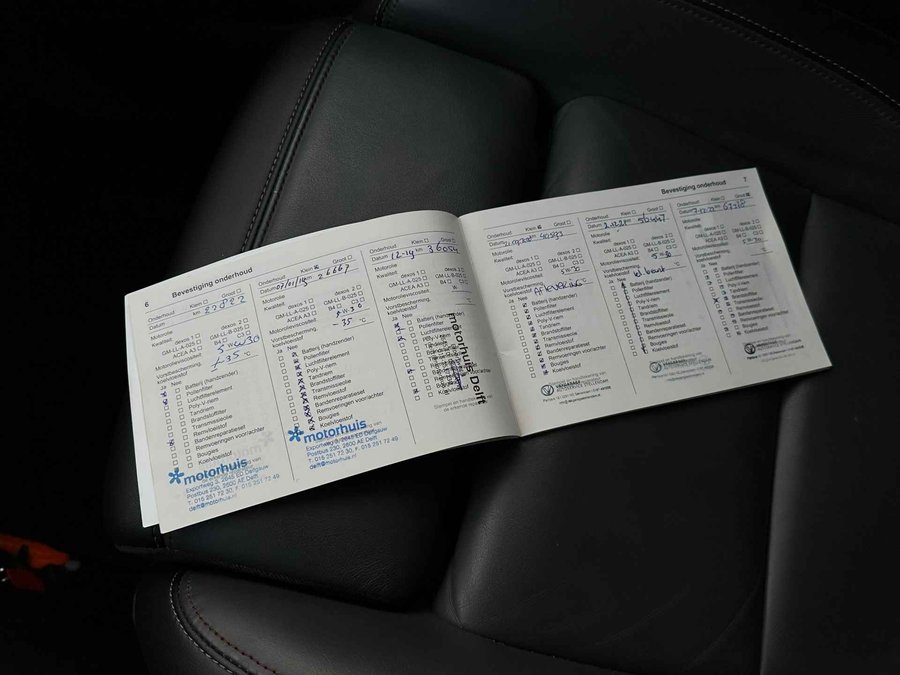 6
Bevestiging onderhoud
Onderhoud Klein Groot
Datum km
Motorolie
Kwaliteit dexos 1 dexos 2
GM-LL-A-025 GM-LL-B-025
ACEA A3 B4 C3
Motorolieviscositeit 5w30
Vorstbescherming, koelvloeistof -35 °C
Ja Nee
Batterij (handzender)
Pollenfilter
Luchtfilterelement
Poly V-riem
Tandriem
Brandstoffilter
Transmissieolie
Remvloeistof
Bandenreparatieset
Remvoeringen voor/achter
Bougies
Koelvloeistof
motorhuis
Exportweg 3, 2645 ED Delfgauw
Postbus 230, 2600 AE Delft
T. 015 251 72 30, F. 015 251 72 49
delft@motorhuis.nl
Onderhoud Klein Groot
Datum 07/01/19 km 26667
Motorolie
Kwaliteit dexos 1 dexos 2
GM-LL-A-025 GM-LL-B-025
ACEA A3 B4 C3
Motorolieviscositeit
Vorstbescherming, koelvloeistof -35 °C
Ja Nee
Batterij (handzender)
Pollenfilter
Luchtfilterelement
Poly V-riem
Tandriem
Brandstoffilter
Transmissieolie
Remvloeistof
Bandenreparatieset
Remvoeringen voor/achter
Bougies
Koelvloeistof
motorhuis
Exportweg 3, 2645 ED Delfgauw
Postbus 230, 2600 AE Delft
T. 015 251 72 30, F. 015 251 72 49
delft@motorhuis.nl
Onderhoud Klein Groot
Datum 12-19 km 36054
Motorolie
Kwaliteit dexos 1 dexos 2
GM-LL-A-025 GM-LL-B-025
ACEA A3 B4 C3
Motorolieviscositeit
Vorstbescherming, koelvloeistof °C
Ja Nee
Batterij (handzender)
Pollenfilter
Luchtfilterelement
Poly V-riem
Tandriem
motorhuis Delft
Stempel en handtekening van de erkende
7
Bevestiging onderhoud
Onderhoud Klein Groot
Datum km
Motorolie
Kwaliteit dexos 1 dexos 2
GM-LL-A-025 GM-LL-B-025
ACEA A3 B4 C3
Motorolieviscositeit 5w-30
Vorstbescherming, koelvloeistof
Ja Nee
Batterij (handzender)
Pollenfilter
Luchtfilterelement
Poly V-riem
Tandriem
Brandstoffilter
Transmissieolie
Remvloeistof
Bandenreparatieset
Remvoeringen voor/achter
Bougies
Koelvloeistof
Onderhoud Klein Groot
Datum km
Motorolie
Kwaliteit dexos 1 dexos 2
GM-LL-A-025 GM-LL-B-025
ACEA A3 B4 C3
Motorolieviscositeit 5w-30
Vorstbescherming, koelvloeistof
Ja Nee
Batterij (handzender)
Pollenfilter
Luchtfilterelement
Poly V-riem
Tandriem
Brandstoffilter
Transmissieolie
Remvloeistof
Bandenreparatieset
Remvoeringen voor/achter
Bougies
Koelvloeistof
Onderhoud Klein Groot
Datum km
Motorolie
Kwaliteit dexos 1 dexos 2
GM-LL-A-025 GM-LL-B-025
ACEA A3 B4 C3
Motorolieviscositeit 5w-30
Vorstbescherming, koelvloeistof °C
Ja Nee
Batterij (handzender)
Pollenfilter
Luchtfilterelement
Poly V-riem
Tandriem
Brandstoffilter
Transmissieolie
Remvloeistof
Bandenreparatieset
Remvoeringen voor/achter
Bougies
Koelvloeistof